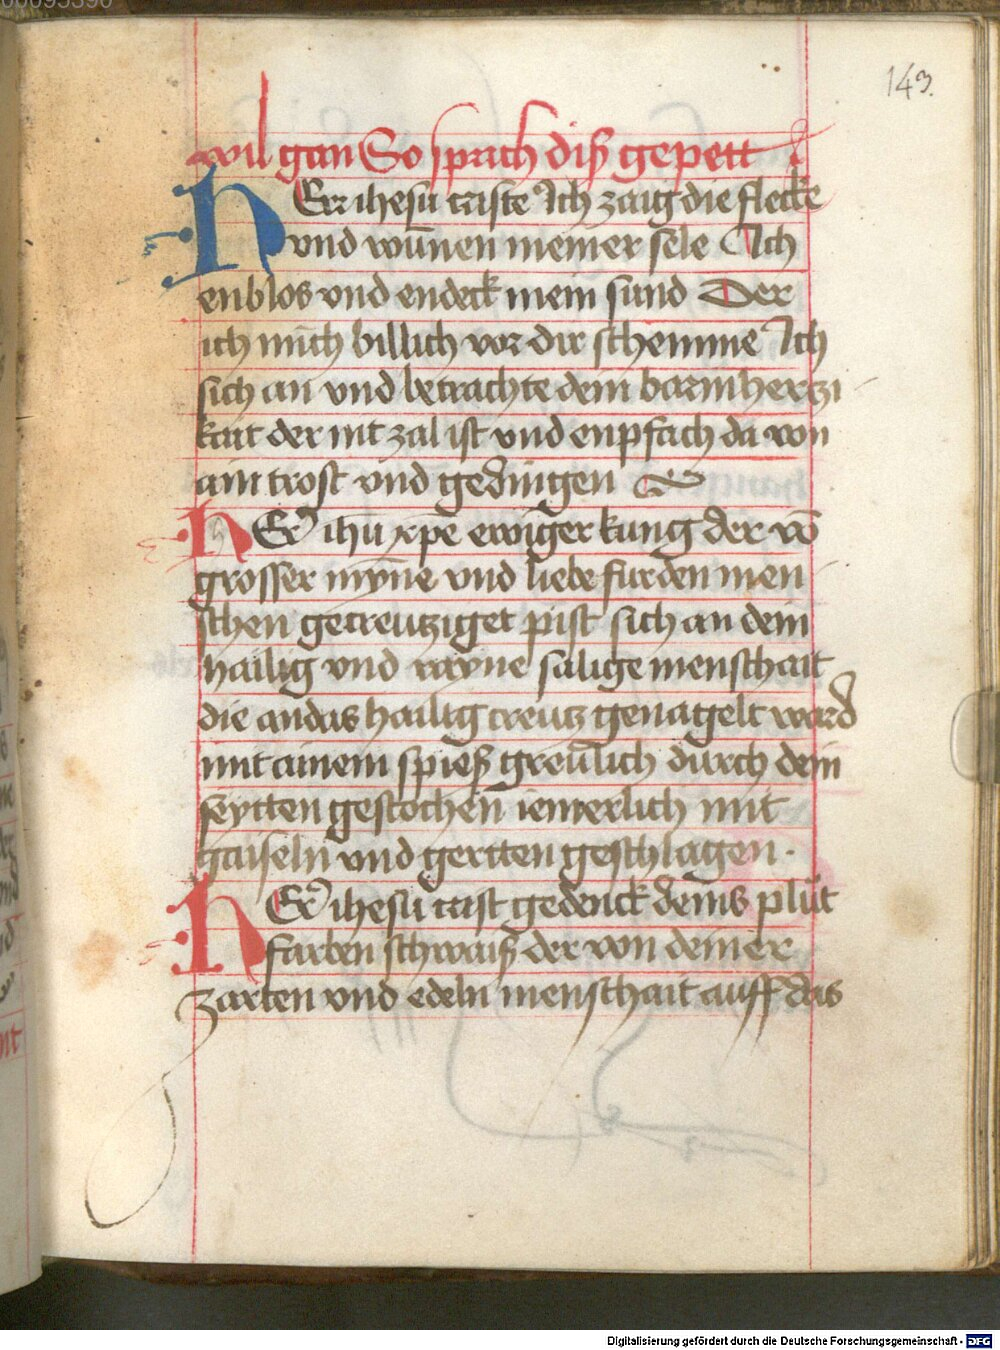 143.
wil gan So sprich diß gepett
HErr ihesu criste Ich zaug die flecke
vnd wūnen meiner sele Ich
enblos vnd endeck mein sund Der
ich mich billich vor dir schemme Ich
sich an vnd betrachte dein barmhertzi
kait der nit zal ist vnd enpfach da von
ain trost vnd gedingen
HEr ihū xpe ewiger kung der vō
grosser myn̄e vnd liebe fur den men
schen getreutziget pist sich an dein
hailig vnd rayne salige menschait
die an das hailig creutz genagelt ward
mit ainem spieß greulich durch dein
seytten gestochen iemerlich mit
gaiseln vnd gertten geschlagen ·
HEr ihesu crist gedenck deins plůt
farben schwaiß der von deiner
zarten vnd edeln menschait auff das
Digitalisierung gefördert durch die Deutsche Forschungsgemeinschaft - DFG